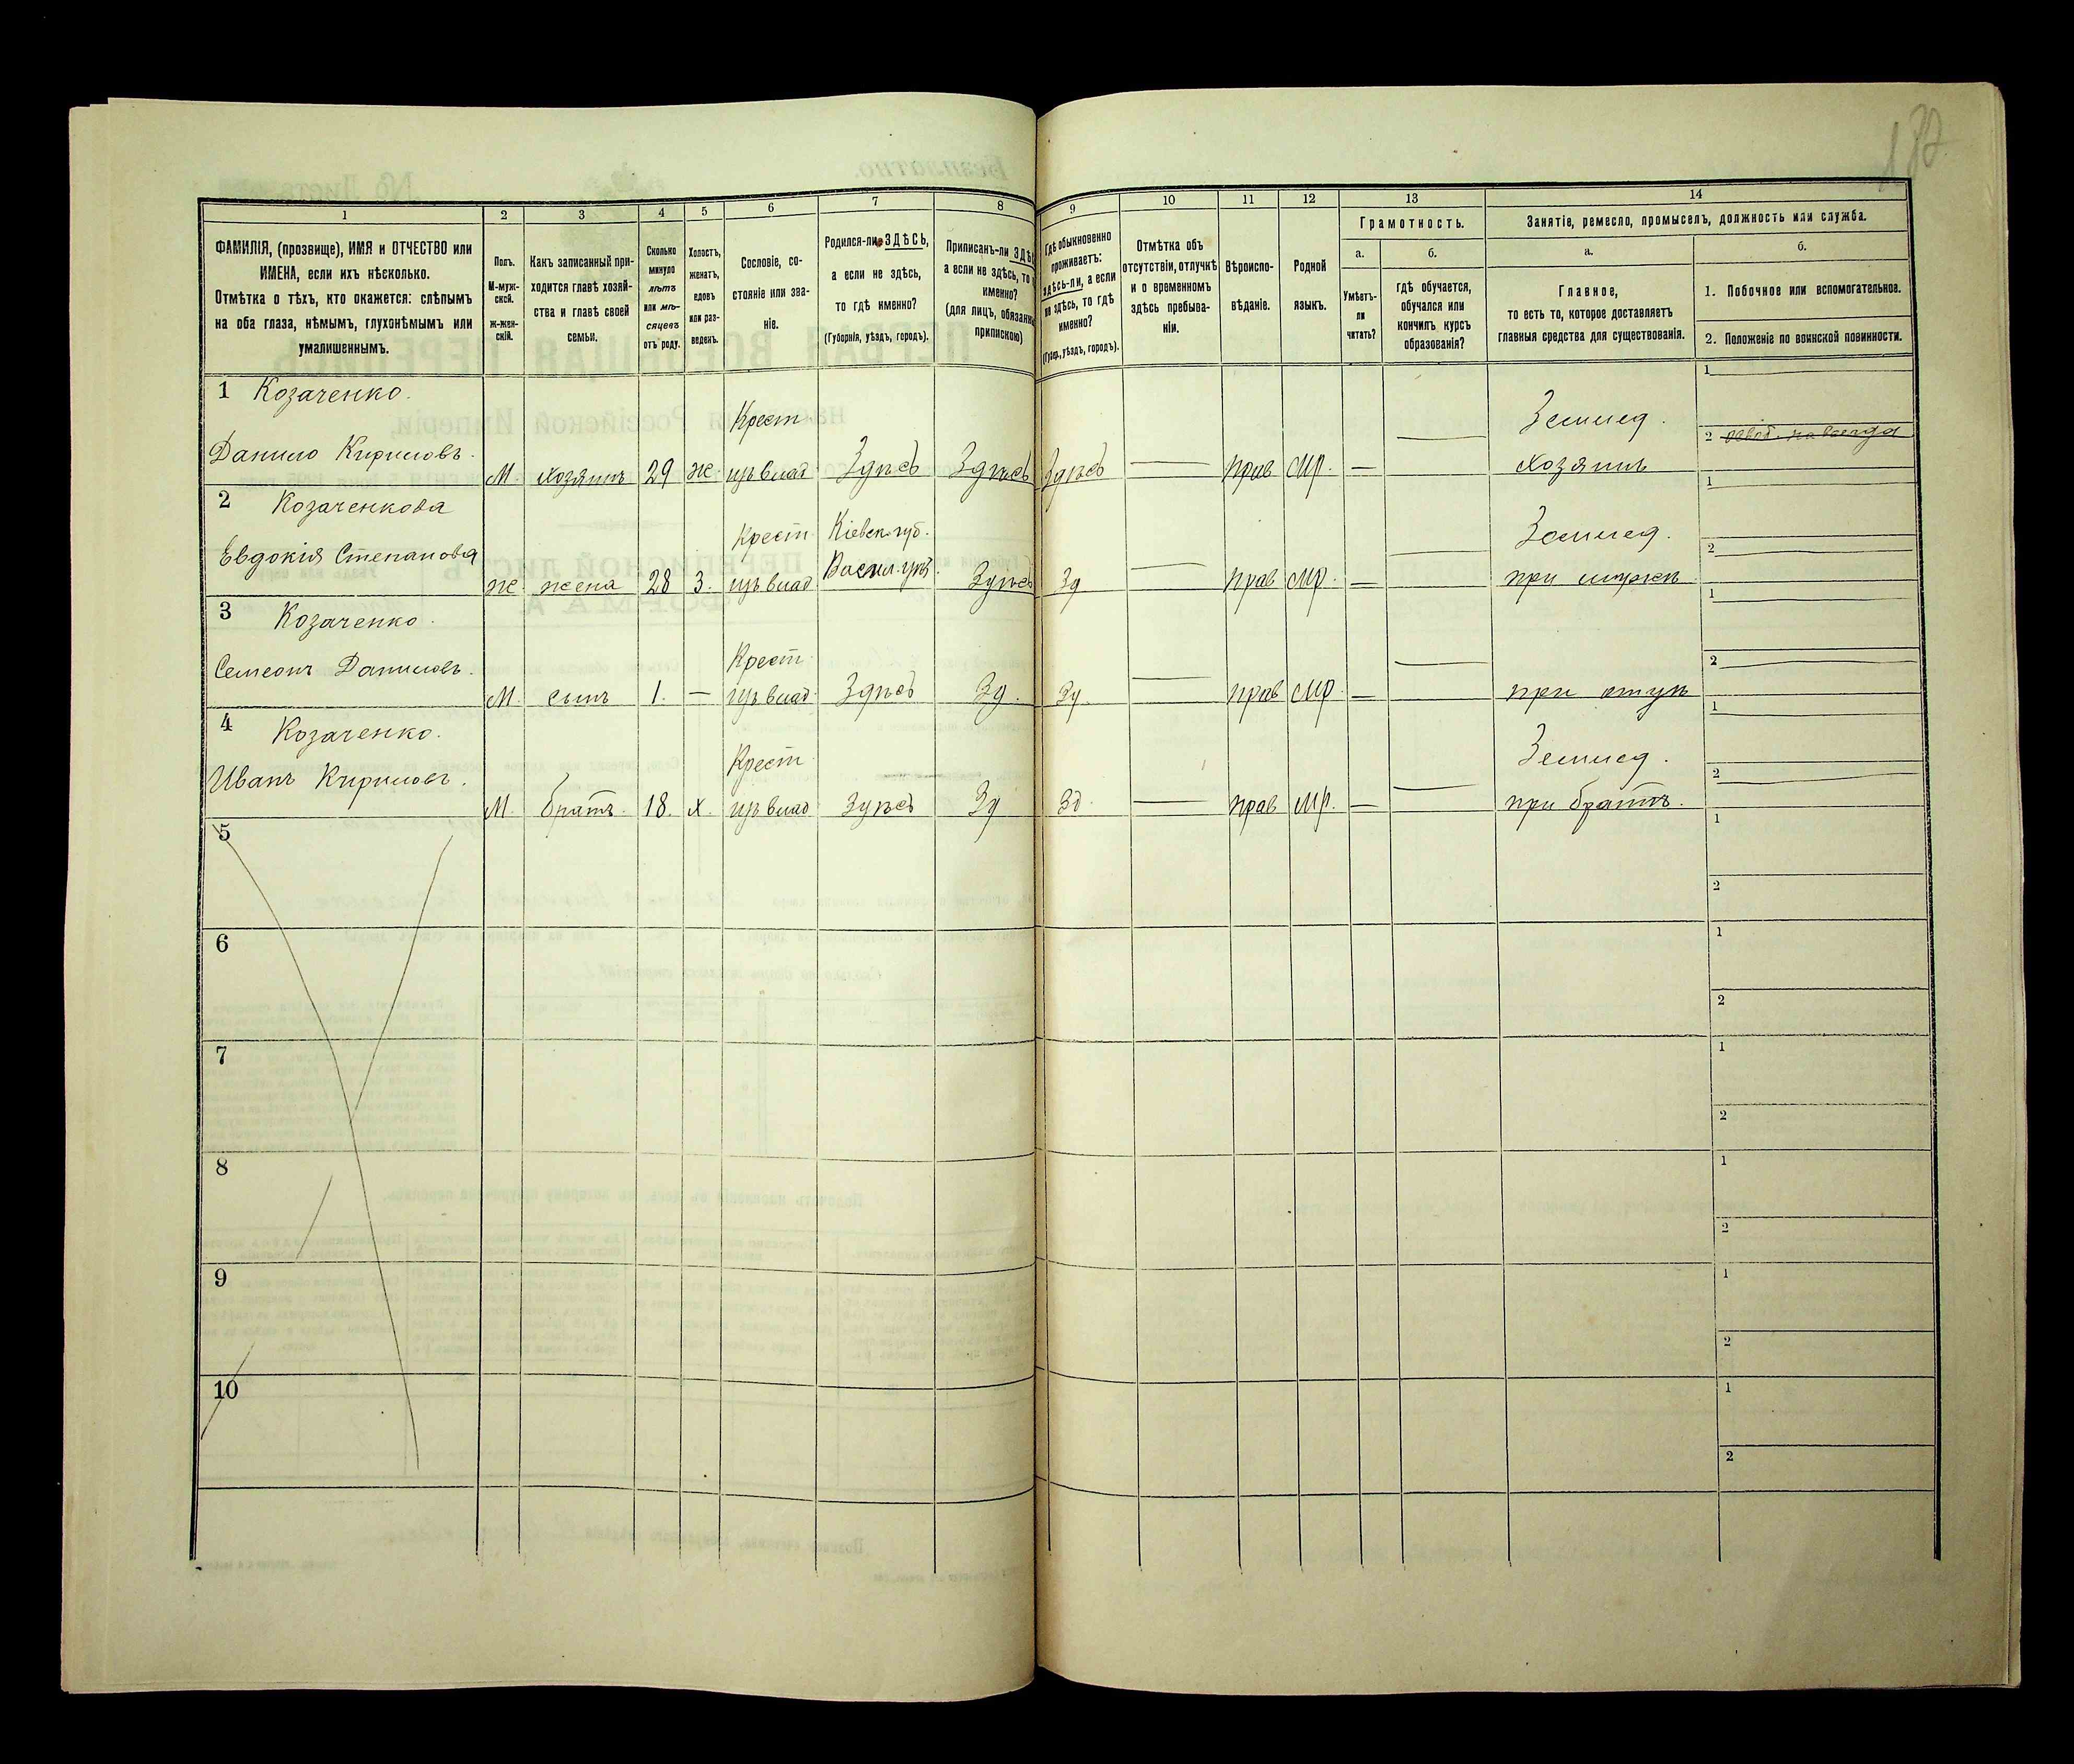 137
1 2 3 4 5 6 7 8 9 10 11 12 13 14
ФАМИЛІЯ, (прозвище), ИМЯ и ОТЧЕСТВО или
ИМЕНА, если ихъ нѣсколько.
Отмѣтка о тѣхъ, кто окажется: слѣпымъ
на оба глаза, нѣмымъ, глухонѣмымъ или
умалишеннымъ.
Полъ.
М-муж-
ской.
ж-жен-
скій.
Какъ записанный при-
ходится главѣ хозяй-
ства и главѣ своей
семьи.
Сколько
минуло
лѣтъ
или мѣ-
сяцевъ
отъ роду.
Холостъ,
женатъ,
вдовъ
или раз-
веденъ.
Сословіе, со-
стояніе или зва-
ніе.
Родился-ли ЗДѢСЬ,
а если не здѣсь,
то гдѣ именно?
(Губернія, уѣздъ, городъ).
Приписанъ-ли ЗДѢ
а если не здѣсь, то
именно?
(для лицъ, обязан
припискою)
Гдѣ обыкновенно
проживаетъ:
здѣсь-ли, а если
не здѣсь, то гдѣ
именно?
(Губер., уѣздъ, городъ).
Отмѣтка объ
отсутствіи, отлучкѣ
и о временномъ
здѣсь пребыва-
ніи.
Вѣроиспо-
вѣданіе.
Родной
языкъ.
Грамотность.
а.
Умѣетъ-
ли
читать?
б.
гдѣ обучается,
обучался или
кончилъ курсъ
образованія?
Занятіе, ремесло, промыселъ, должность или служба.
а.
Главное,
то есть то, которое доставляетъ
главныя средства для существованія.
б.
1. Побочное или вспомогательное.
2. Положеніе по воинской повинности.
1 Козаченко. Крест Землед. 1
Данило Кириловъ. М. хозяинъ 29 ж. изъ влад Здѣсь Здѣсь Здѣсь — прав мр. — — хозяинъ 2 освоб. навсегда
2 Козаченкова Крест Кіевск. губ. Землед. 1
Евдокія Степанова ж. жена 28 З. изъ влад Васил. уѣз. Здѣсь Зд — прав мр. — — при мужѣ 2
3 Козаченко. Крест 1
Семеонъ Даниловъ. М. сынъ 1. — изъ влад Здѣсь Зд. Зд. — прав мр. — — при отцѣ 2
4 Козаченко. Крест Землед. 1
Иванъ Кириловъ. М. братъ. 18. х. изъ влад Здѣсь Зд Зд. — прав мр. — — при братѣ. 2
5 1
2
6 1
2
7 1
2
8 1
2
9 1
2
10 1
2